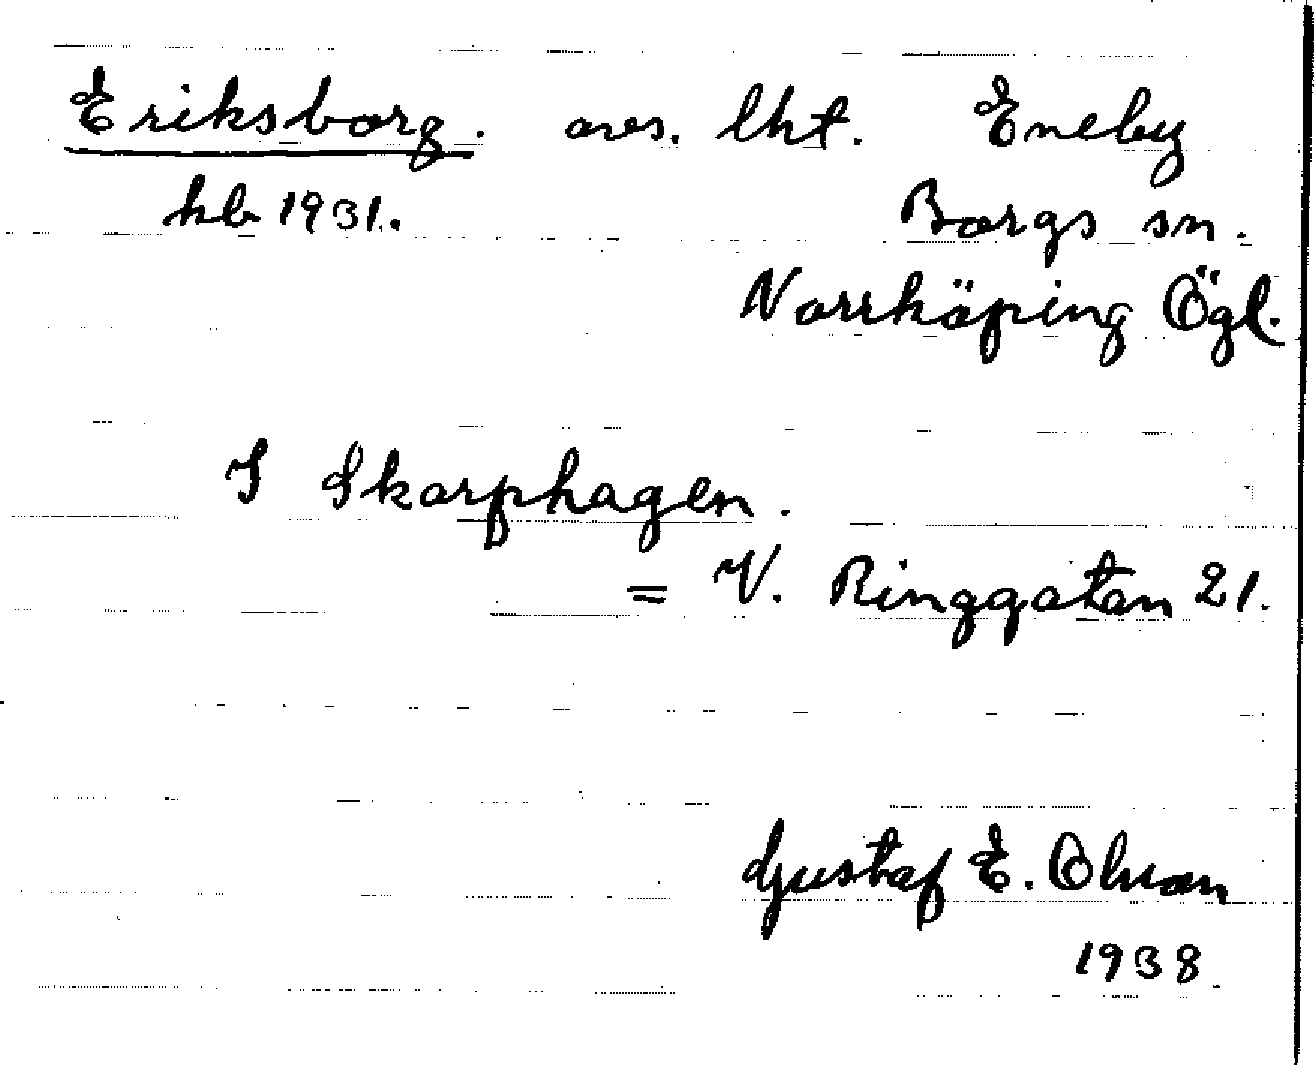 Eriksborg. avs. lht. Eneby
kb 1931. Borgs sn.
Norrköping Ögl.
I Skarphagen.
= V. Ringgatan 21.
Gustaf E. Olsson
1938